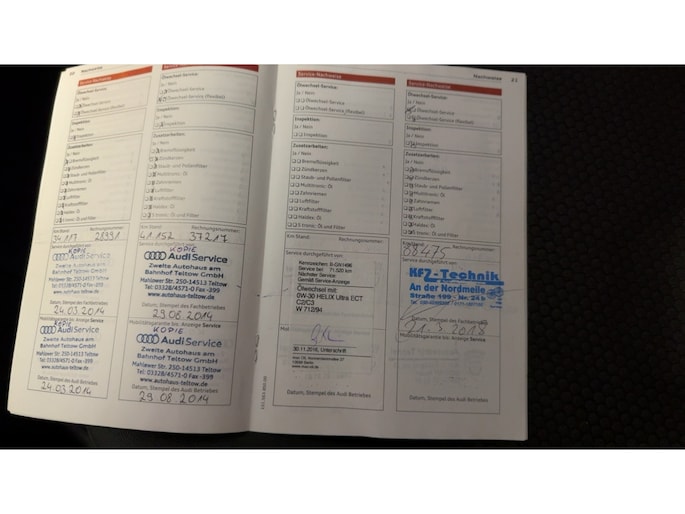 Nachweise
Service-Nachweise
Ölwechsel-Service:
Ja / Nein
Ölwechsel-Service
Ölwechsel-Service (flexibel)
Inspektion:
Ja / Nein
Inspektion
Zusatzarbeiten:
Ja / Nein
Bremsflüssigkeit
Zündkerzen
Staub- und Pollenfilter
Multitronic: Öl
Zahnriemen
Luftfilter
Kraftstofffilter
Haldex: Öl
S tronic: Öl und Filter
Km Stand: Rechnungsnummer:
34 117 28991
Service durchgeführt von:
KOPIE
Audi Service
Zweite Autohaus am
Bahnhof Teltow GmbH
Mahlower Str. 250·14513 Teltow
Tel: 03328/4571-0 Fax -399
www.autohaus-teltow.de
Datum, Stempel des Fachbetriebes
24.03.2014
Mobilitätsgarantie bis: Anzeige Service
KOPIE
Audi Service
Zweite Autohaus am
Bahnhof Teltow GmbH
Mahlower Str. 250·14513 Teltow
Tel: 03328/4571-0 Fax -399
www.autohaus-teltow.de
Datum, Stempel des Audi Betriebes
24.03.2014
Service-Nachweise
Ölwechsel-Service:
Ja / Nein
Ölwechsel-Service
Ölwechsel-Service (flexibel)
Inspektion:
Ja / Nein
Inspektion
Zusatzarbeiten:
Ja / Nein
Bremsflüssigkeit
Zündkerzen
Staub- und Pollenfilter
Multitronic: Öl
Zahnriemen
Luftfilter
Kraftstofffilter
Haldex: Öl
S tronic: Öl und Filter
Km Stand: Rechnungsnummer:
41 152 37217
Service durchgeführt von:
KOPIE
Audi Service
Zweite Autohaus am
Bahnhof Teltow GmbH
Mahlower Str. 250·14513 Teltow
Tel: 03328/4571-0 Fax -399
www.autohaus-teltow.de
Datum, Stempel des Fachbetriebes
29.08.2014
Mobilitätsgarantie bis: Anzeige Service
KOPIE
Audi Service
Zweite Autohaus am
Bahnhof Teltow GmbH
Mahlower Str. 250·14513 Teltow
Tel: 03328/4571-0 Fax -399
www.autohaus-teltow.de
Datum, Stempel des Audi Betriebes
29.08.2014
Nachweise
Service-Nachweise
Ölwechsel-Service:
Ja / Nein
Ölwechsel-Service
Ölwechsel-Service (flexibel)
Inspektion:
Ja / Nein
Inspektion
Zusatzarbeiten:
Ja / Nein
Bremsflüssigkeit
Zündkerzen
Staub- und Pollenfilter
Multitronic: Öl
Zahnriemen
Luftfilter
Kraftstofffilter
Haldex: Öl
S tronic: Öl und Filter
Km Stand: Rechnungsnummer:
Service durchgeführt von:
Kennzeichen: B-GN1496
Service bei: 71.520 km
Nächster Service:
Gemäß Service-Anzeige
Ölwechsel mit:
0W-30 HELIX Ultra ECT
C2/C3
W 712/94
30.11.2016, Unterschrift
Datum, Stempel des Audi Betriebes
Service-Nachweise
Ölwechsel-Service:
Ja / Nein
Ölwechsel-Service
Ölwechsel-Service (flexibel)
Inspektion:
Ja / Nein
Inspektion
Zusatzarbeiten:
Ja / Nein
Bremsflüssigkeit
Zündkerzen
Staub- und Pollenfilter
Multitronic: Öl
Zahnriemen
Luftfilter
Kraftstofffilter
Haldex: Öl
S tronic: Öl und Filter
Rechnungsnummer:
88475
Service durchgeführt von:
KFZ-Technik
An der Nordmeile
Straße 199 - Nr. 24 b
Datum, Stempel des Fachbetriebes
21.3.2018
Mobilitätsgarantie bis: Anzeige Service
Datum, Stempel des Audi Betriebes